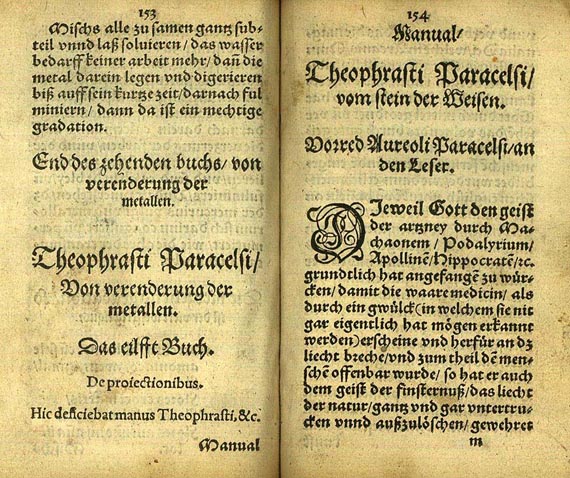 153
Mischs alle zu samen gantz sub⸗
teil vnnd laß soluieren / das wasser
bedarff keiner arbeit mehr / dañ die
metal darein legen vnd digerieren
biß auff sein kurtze zeit / darnach ful
miniern / dann da ist ein mechtige
gradation.
End des zehenden buchs / von
verenderung der
metallen.
Theophrasti Paracelsi /
Von verenderung der
metallen.
Das eilfft Buch.
De proiectionibus.
Hic deficiebat manus Theophrasti, &c.
Manual
154
Manual /
Theophrasti Paracelsi /
vom stein der Weisen.
Vorred Aureoli Paracelsi / an
den Leser.
DJeweil Gott den geist
der artzney durch Ma⸗
chaonem / Podalyrium /
Apollinē / Hippocratē / ꝛc.
grundtlich hat angefangē zu wür⸗
cken / damit die waare medicin / als
durch ein gwülck (in welchem sie nit
gar eigentlich hat mögen erkannt
werden) erscheine vnd herfür an dz
liecht breche / vnd zum theil dē men⸗
schē offenbar wurde / so hat er auch
dem geist der finsternuß / das liecht
der natur / gantz vnd gar vntertru⸗
cken vnnd außzulöschen / gewehret
m